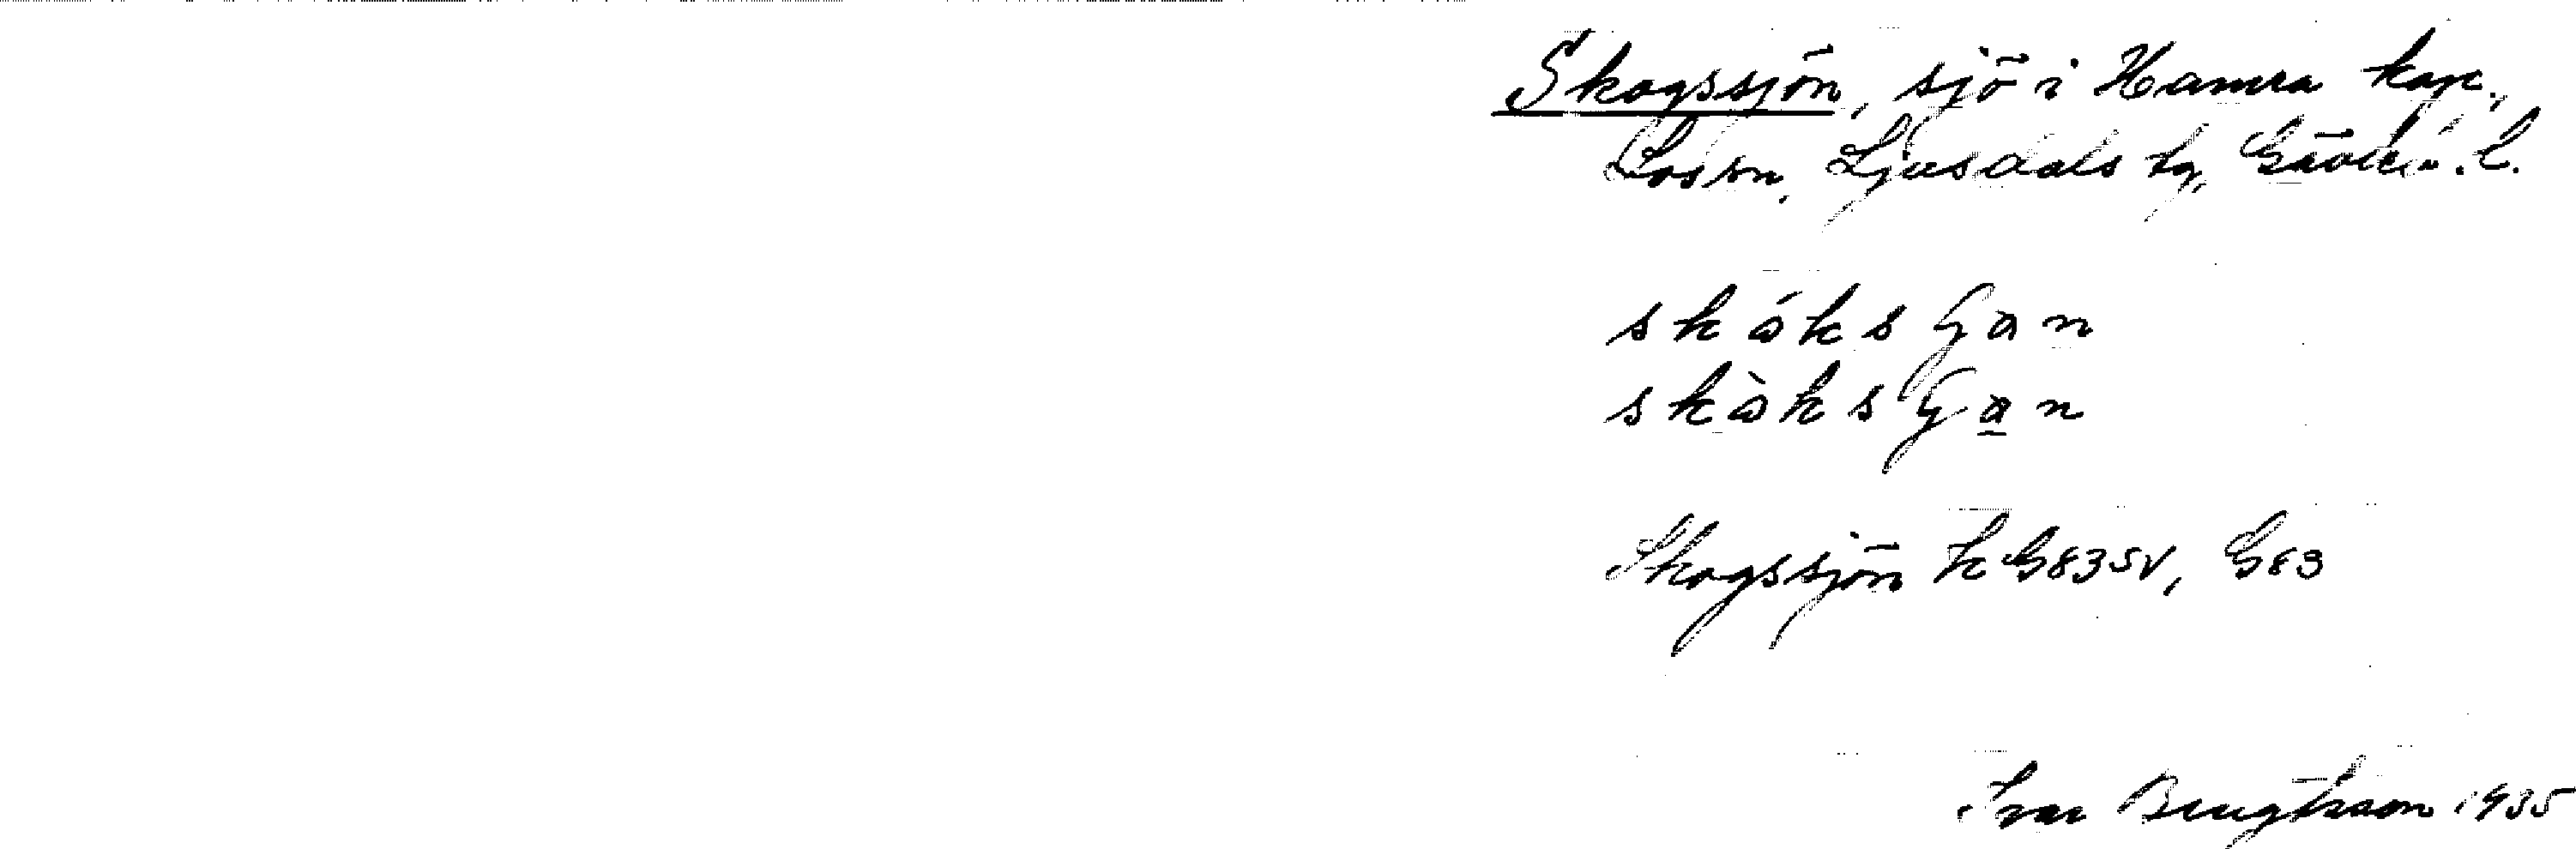 Skogssjön, sjö i Hamra kap.,
Los sn, Ljusdals tg, Gävleb. l.
skáksjan
skàksjan
Skogssjön K G83SV, G83
Ivar Bengtsson 1935